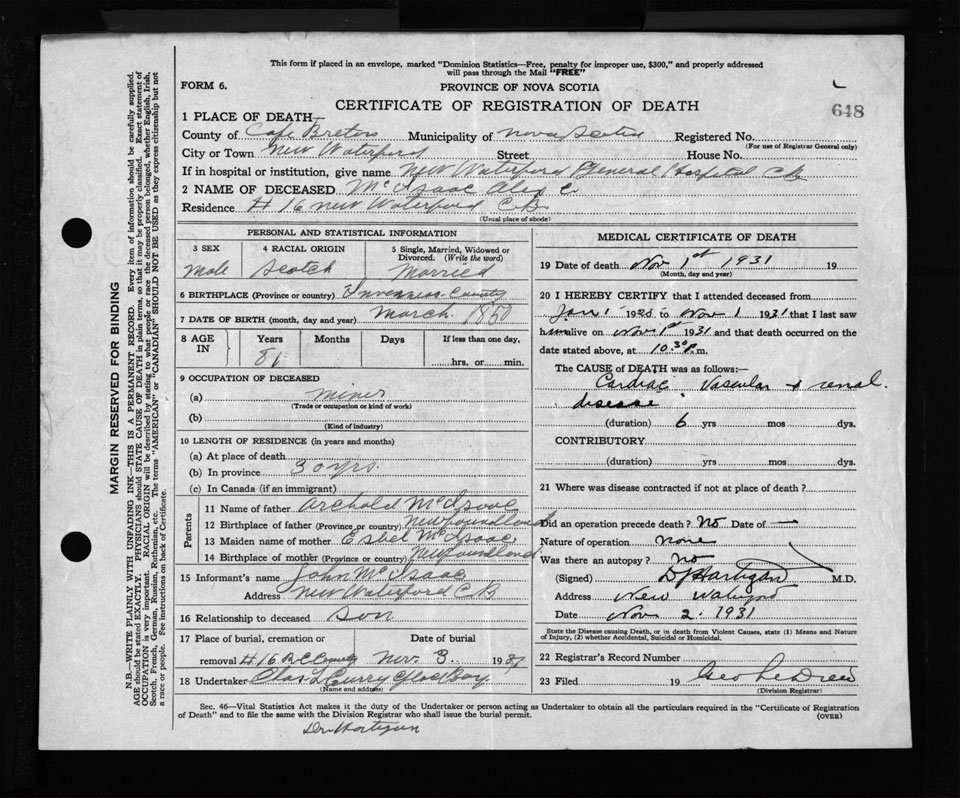 This form if placed in an envelope, marked "Dominion Statistics—Free, penalty for improper use, $300," and properly addressed
will pass through the Mail "FREE"
FORM 6.
PROVINCE OF NOVA SCOTIA
CERTIFICATE OF REGISTRATION OF DEATH
648
1 PLACE OF DEATH—
County of Cape Breton Municipality of Nova Scotia Registered No.
(For use of Registrar General only)
City or Town New Waterford Street House No.
If in hospital or institution, give name New Waterford General Hospital C.B.
2 NAME OF DECEASED McIsaac Alex C.
Residence # 16 New Waterford C.B.
(Usual place of abode)
PERSONAL AND STATISTICAL INFORMATION
3 SEX 4 RACIAL ORIGIN 5 Single, Married, Widowed or
Divorced. (Write the word)
Male Scotch Married
6 BIRTHPLACE (Province or country) Inverness County
7 DATE OF BIRTH (month, day and year) March 1850
8 AGE IN Years Months Days If less than one day,
81 hrs. or min.
9 OCCUPATION OF DECEASED
(a) Miner
(Trade or occupation or kind of work)
(b)
(Kind of industry)
10 LENGTH OF RESIDENCE (in years and months)
(a) At place of death
(b) In province 30 yrs.
(c) In Canada (if an immigrant)
Parents
11 Name of father Archold McIsaac
12 Birthplace of father (Province or country) Newfoundland
13 Maiden name of mother McIsaac
14 Birthplace of mother (Province or country) Newfoundland
15 Informant's name John McIsaac
Address New Waterford C.B
16 Relationship to deceased Son
17 Place of burial, cremation or Date of burial
removal # 16 R.C. Nov. 3. 1931
18 Undertaker Chas Curry Glace Bay
(Name and address)
MEDICAL CERTIFICATE OF DEATH
19 Date of death Nov 1st 1931 19
(Month, day and year)
20 I HEREBY CERTIFY that I attended deceased from
Jan 1 1920 to Nov 1 1931 that I last saw
him alive on Nov 1st 1931 and that death occurred on the
date stated above, at 10.30 P.m.
The CAUSE of DEATH was as follows:—
Cardiac, Vascular & renal
disease
(duration) 6 yrs mos dys.
CONTRIBUTORY
(duration) yrs mos dys.
21 Where was disease contracted if not at place of death?
Did an operation precede death? No Date of —
Nature of operation none
Was there an autopsy? no
(Signed) DJ Hartigan M.D.
Address New Waterford
Date Nov 2. 1931
State the Disease causing Death, or in death from Violent Causes, state (1) Means and Nature
of Injury, (2) whether Accidental, Suicidal or Homicidal.
22 Registrar's Record Number
23 Filed 19 Geo LeDrew
(Division Registrar)
Sec. 46—Vital Statistics Act makes it the duty of the Undertaker or person acting as Undertaker to obtain all the particulars required in the "Certificate of Registration
of Death" and to file the same with the Division Registrar who shall issue the burial permit.
(OVER)
Dr. Hartigan
MARGIN RESERVED FOR BINDING
N.B.—WRITE PLAINLY WITH UNFADING INK—THIS IS A PERMANENT RECORD. Every item of information should be carefully supplied.
AGE should be stated EXACTLY. PHYSICIANS should STATE CAUSE OF DEATH in plain terms, so that it may be properly classified. Exact statement of
OCCUPATION is very important. RACIAL ORIGIN will be described by stating to what people or race the deceased person belonged, whether English, Irish,
Scotch, French, German, Russian, Ruthenian, etc. The terms "AMERICAN" or "CANADIAN" SHOULD NOT BE USED as they express citizenship but not
a race or people. See instructions on back of Certificate.